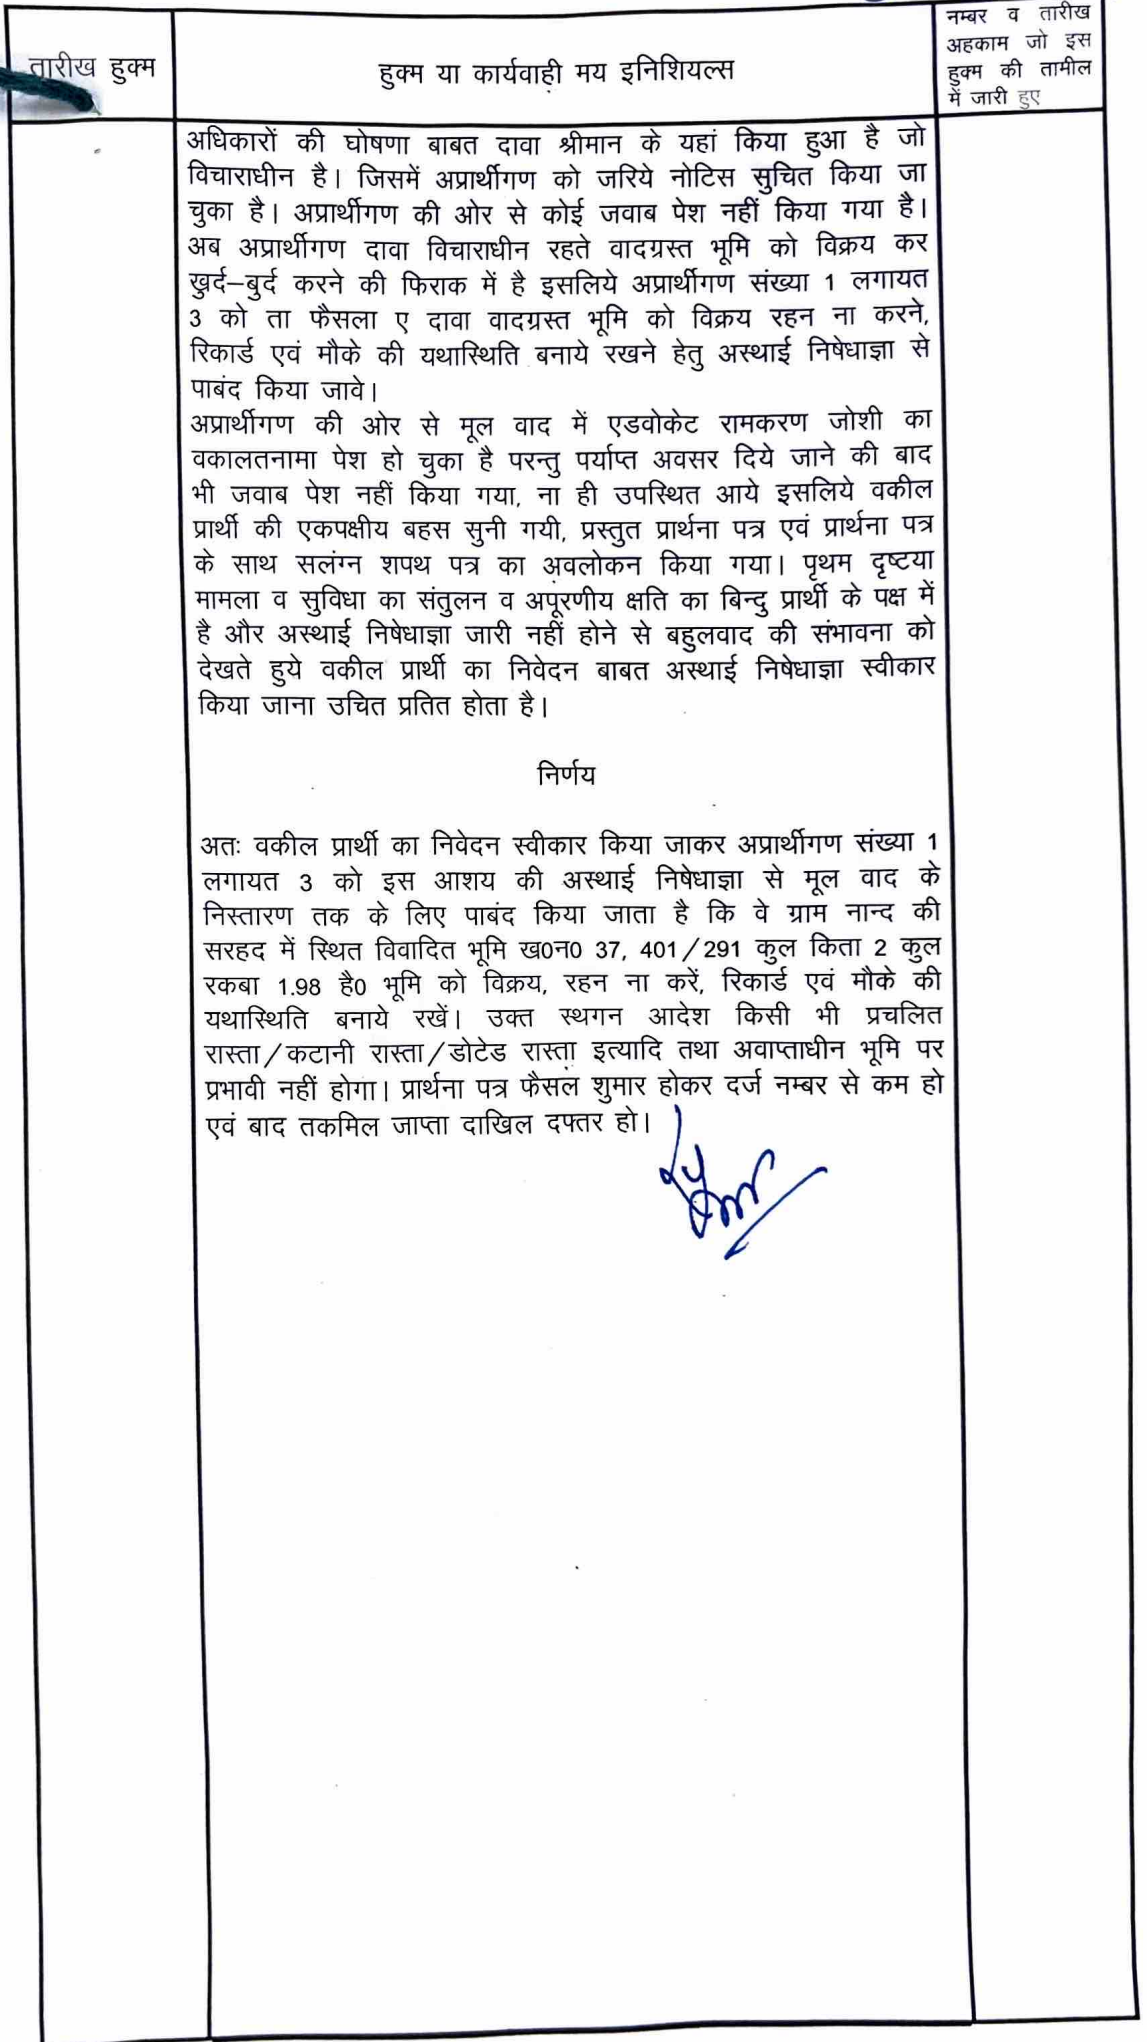 तारीख हुक्म
हुक्म या कार्यवाही मय इनिशियल्स
नम्बर व तारीख
अहकाम जो इस
हुक्म की तामील
में जारी हुए
अधिकारों की घोषणा बाबत दावा श्रीमान के यहां किया हुआ है जो
विचाराधीन है। जिसमें अप्रार्थीगण को जरिये नोटिस सुचित किया जा
चुका है। अप्रार्थीगण की ओर से कोई जवाब पेश नहीं किया गया है।
अब अप्रार्थीगण दावा विचाराधीन रहते वादग्रस्त भूमि को विक्रय कर
खुर्द–बुर्द करने की फिराक में है इसलिये अप्रार्थीगण संख्या 1 लगायत
3 को ता फैसला ए दावा वादग्रस्त भूमि को विक्रय रहन ना करने,
रिकार्ड एवं मौके की यथास्थिति बनाये रखने हेतु अस्थाई निषेधाज्ञा से
पाबंद किया जावे।
अप्रार्थीगण की ओर से मूल वाद में एडवोकेट रामकरण जोशी का
वकालतनामा पेश हो चुका है परन्तु पर्याप्त अवसर दिये जाने की बाद
भी जवाब पेश नहीं किया गया, ना ही उपस्थित आये इसलिये वकील
प्रार्थी की एकपक्षीय बहस सुनी गयी, प्रस्तुत प्रार्थना पत्र एवं प्रार्थना पत्र
के साथ सलंग्न शपथ पत्र का अवलोकन किया गया। पृथम दृष्टया
मामला व सुविधा का संतुलन व अपूरणीय क्षति का बिन्दु प्रार्थी के पक्ष में
है और अस्थाई निषेधाज्ञा जारी नहीं होने से बहुलवाद की संभावना को
देखते हुये वकील प्रार्थी का निवेदन बाबत अस्थाई निषेधाज्ञा स्वीकार
किया जाना उचित प्रतित होता है।
निर्णय
अतः वकील प्रार्थी का निवेदन स्वीकार किया जाकर अप्रार्थीगण संख्या 1
लगायत 3 को इस आशय की अस्थाई निषेधाज्ञा से मूल वाद के
निस्तारण तक के लिए पाबंद किया जाता है कि वे ग्राम नान्द की
सरहद में स्थित विवादित भूमि ख0न0 37, 401/291 कुल किता 2 कुल
रकबा 1.98 है0 भूमि को विक्रय, रहन ना करें, रिकार्ड एवं मौके की
यथास्थिति बनाये रखें। उक्त स्थगन आदेश किसी भी प्रचलित
रास्ता/कटानी रास्ता/डोटेड रास्ता इत्यादि तथा अवाप्ताधीन भूमि पर
प्रभावी नहीं होगा। प्रार्थना पत्र फैसल शुमार होकर दर्ज नम्बर से कम हो
एवं बाद तकमिल जाप्ता दाखिल दफ्तर हो।